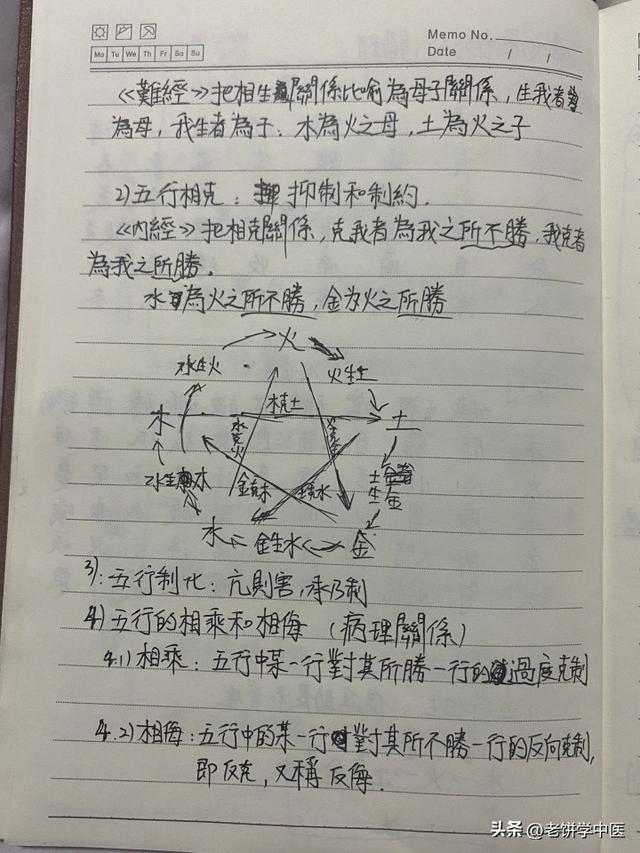 Memo No.
Mo Tu We Th Fr Sa Su
Date / /
《難經》把相生關係比喻為母子關係,生我者
為母,我生者為子。木為火之母,土為火之子
2)五行相克:抑制和制約.
《內經》把相克關係,克我者為我之所不勝,我克者
為我之所勝.
水為火之所不勝,金为火之所勝
火
火生土
木克土
木
土
水克火
火克金
水生木
金克木
土克水
土生金
水
金生水
金
3):五行制化:亢則害,承乃制
4)五行的相乘和相侮(病理關係)
4.1)相乘:五行中某一行對其所勝一行的過度克制
4.2)相侮:五行中的某一行對其所不勝一行的反向克制,
即反克,又稱反侮.
头条 @老饼学中医